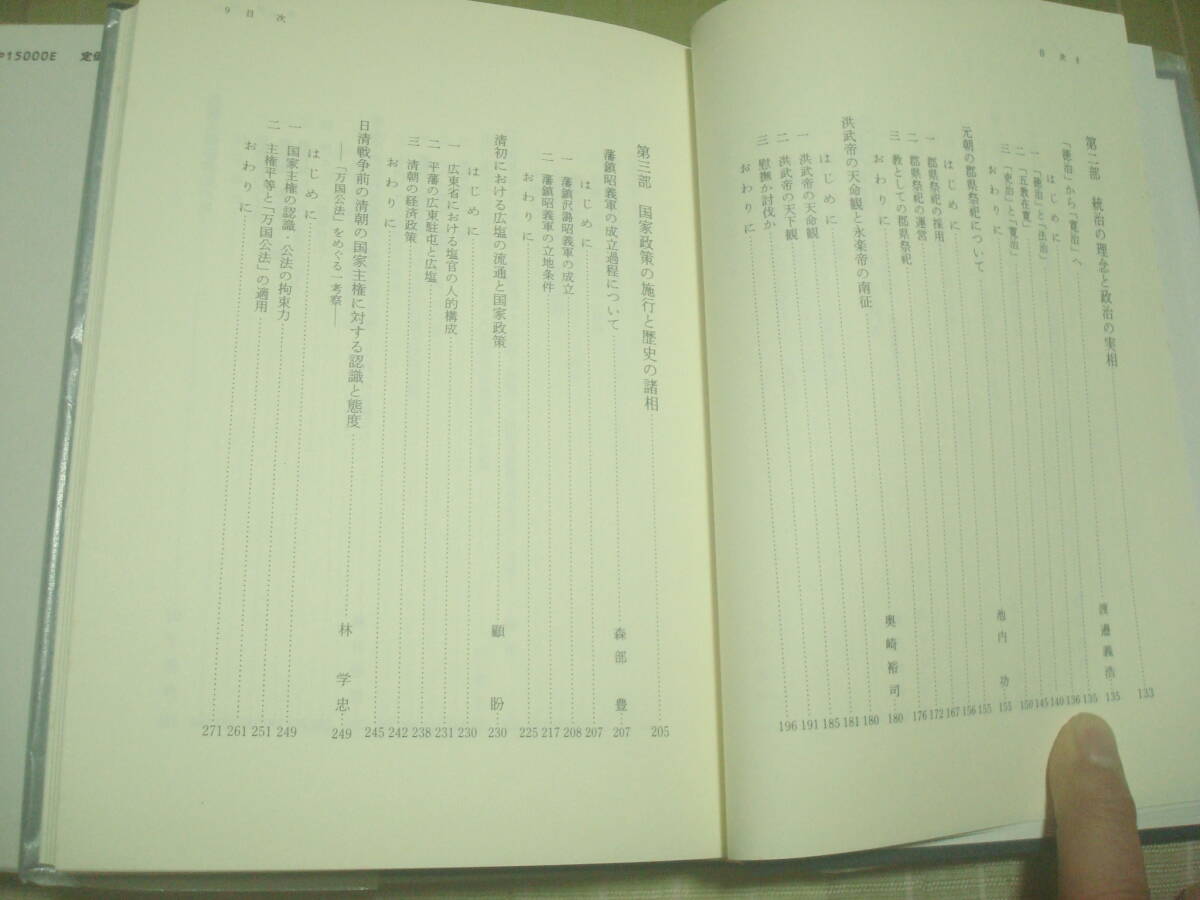 目次 8
第二部 統治の理念と政治の実相 133
「徳治」から「寛治」へ 渡邉義浩 135
はじめに 135
一 「徳治」と「法治」 136
二 「五教在寛」 140
三 「吏治」と「寛治」 145
おわりに 150
元朝の郡県祭祀について 池内功 155
はじめに 155
一 郡県祭祀の採用 156
二 郡県祭祀の運営 167
三 教としての郡県祭祀 172
おわりに 176
洪武帝の天命観と永楽帝の南征 奥崎裕司 180
はじめに 180
一 洪武帝の天命観 181
二 洪武帝の天下観 185
三 慰撫か討伐か 191
おわりに 196
9 目次
第三部 国家政策の施行と歴史の諸相 205
藩鎮昭義軍の成立過程について 森部豊 207
はじめに 207
一 藩鎮沢潞昭義軍の成立 208
二 藩鎮昭義軍の立地条件 217
おわりに 225
清初における広塩の流通と国家政策 顧盼 230
はじめに 230
一 広東省における塩官の人的構成 231
二 平藩の広東駐屯と広塩 238
三 清朝の経済政策 242
おわりに 245
日清戦争前の清朝の国家主権に対する認識と態度
――「万国公法」をめぐる一考察―― 林学忠 249
はじめに 249
一 国家主権の認識・公法の拘束力 251
二 主権平等と「万国公法」の適用 261
おわりに 271
P15000E 定価